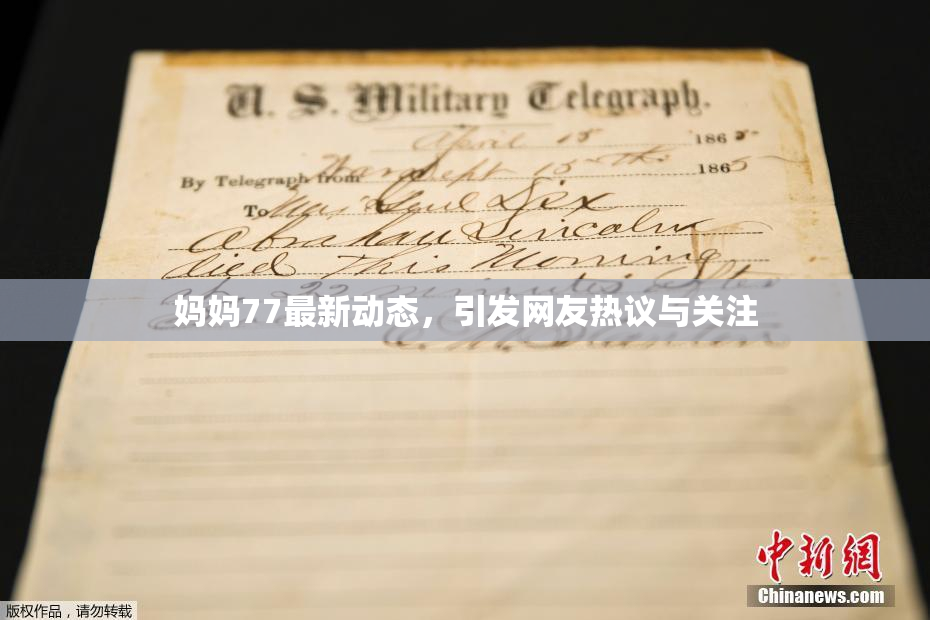 U. S. Military Telegraph.
April 15 1865
By Telegraph from War Dept 15th 1865
To Maj Genl Dix
Abraham Lincoln
died This Morning
at 22 minutes after
妈妈77最新动态，引发网友热议与关注
E. M. Stanton
中新网
Chinanews.com
版权作品，请勿转载